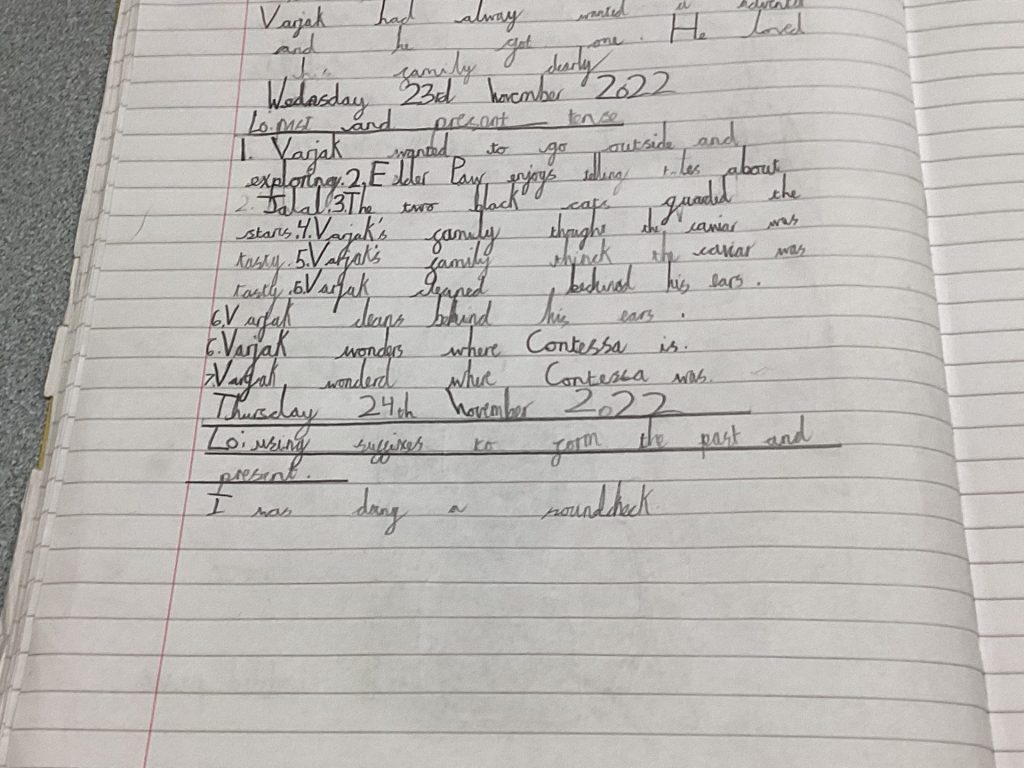 Varjak had alway wanted a
and he got one. He loved
family dearly
Wednesday 23rd November 2022
Lo: and present tense
1. Varjak wanted to go outside and
exploring. 2. Elder Paw enjoys telling about
2. Jalal. 3. The two black cats guarded the
stars. 4. Varjak's family thought the caviar was
tasty. 5. Varjak's family thinck the caviar was
tasty. 6. Varjak cleaned behind his ears.
6. Varjak cleans behind his ears.
6. Varjak wonders where Contessa is.
7. Varjak wonderd where Contessa was.
Thursday 24th November 2022
Lo: using suffixes to form the past and
present.
I was doing a